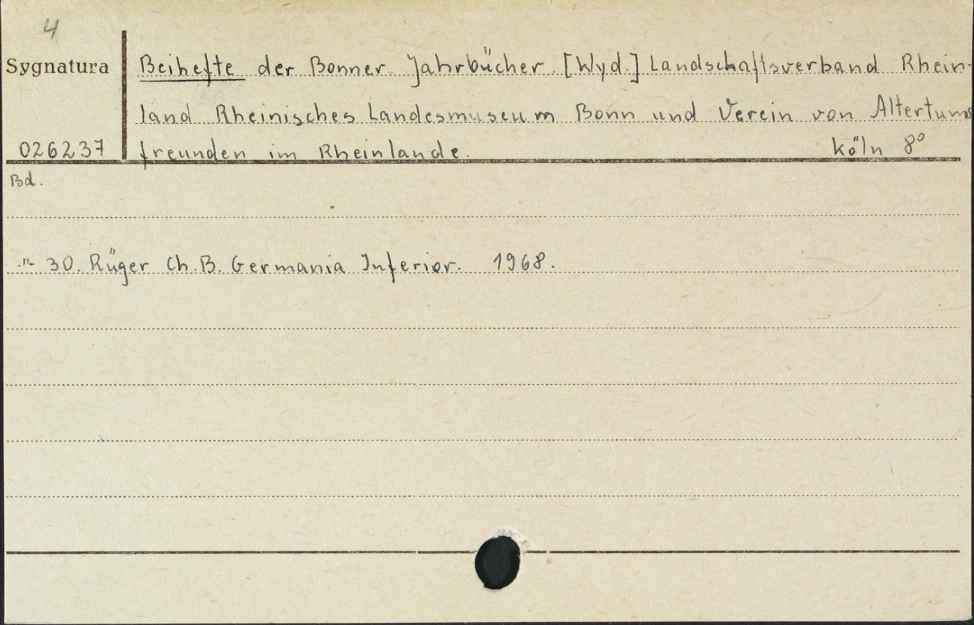 4
Sygnatura
Beihefte der Bonner Jahrbücher. [Wyd.] Landschaftsverband Rhein-
land Rheinisches Landesmuseum Bonn und Verein von Altertums
026237
freunden im Rheinlande. Köln 8°
Bd.
n 30. Rüger Ch. B. Germania Inferior. 1968.